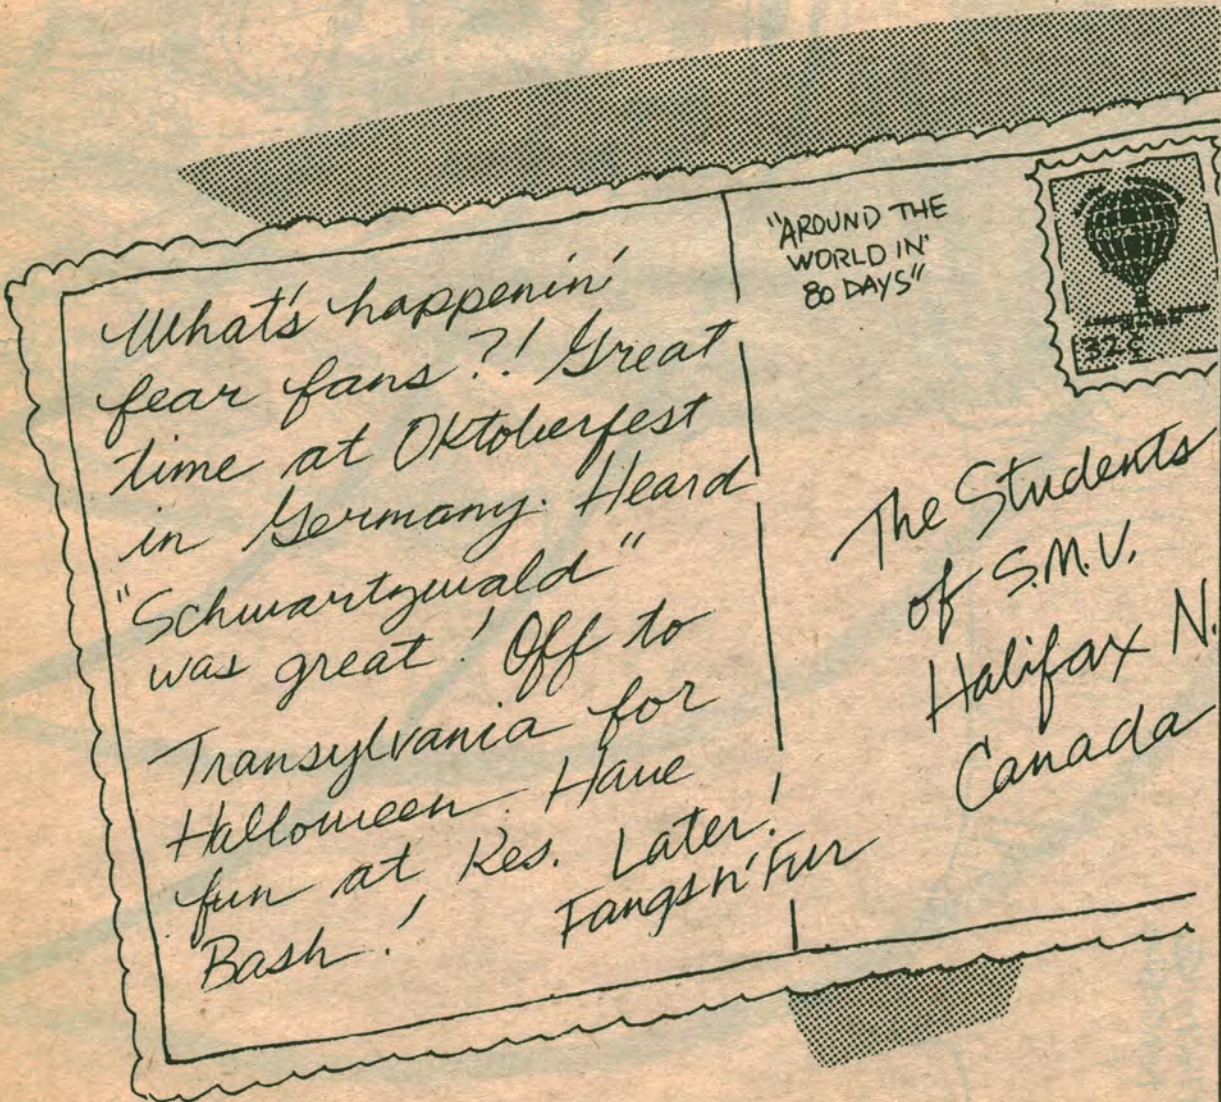 What's happenin'
fear fans?! Great
time at Oktoberfest
in Germany. Heard
"Schwartzwald"
was great! Off to
Transylvania for
Halloween. Have
fun at Res.
Bash!
Later!
Fangs n' Fur
"AROUND THE
WORLD IN
80 DAYS"
32¢
The Students
of S.M.V.
Halifax N.
Canada